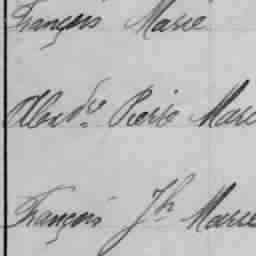 François Marie
Alexdre Pierre Mar
François Jh Marie